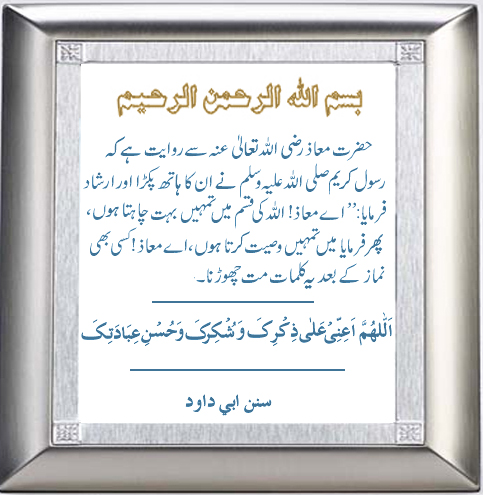 بسم الله الرحمن الرحيم
حضرت معاذ رضی اللہ تعالیٰ عنہ سے روایت ہے کہ
رسول کریم صلی اللہ علیہ وسلم نے ان کا ہاتھ پکڑا اور ارشاد
فرمایا: ’’ اے معاذ! اللہ کی قسم میں تمہیں بہت چاہتا ہوں،
پھر فرمایا میں تمہیں وصیت کرتا ہوں، اے معاذ! کسی بھی
نماز کے بعد یہ کلمات مت چھوڑنا۔
اَللّٰهُمَّ اَعِنِّیْ عَلٰی ذِکْرِکَ وَشُکْرِکَ وَحُسْنِ عِبَادَتِکَ
سنن ابي داود